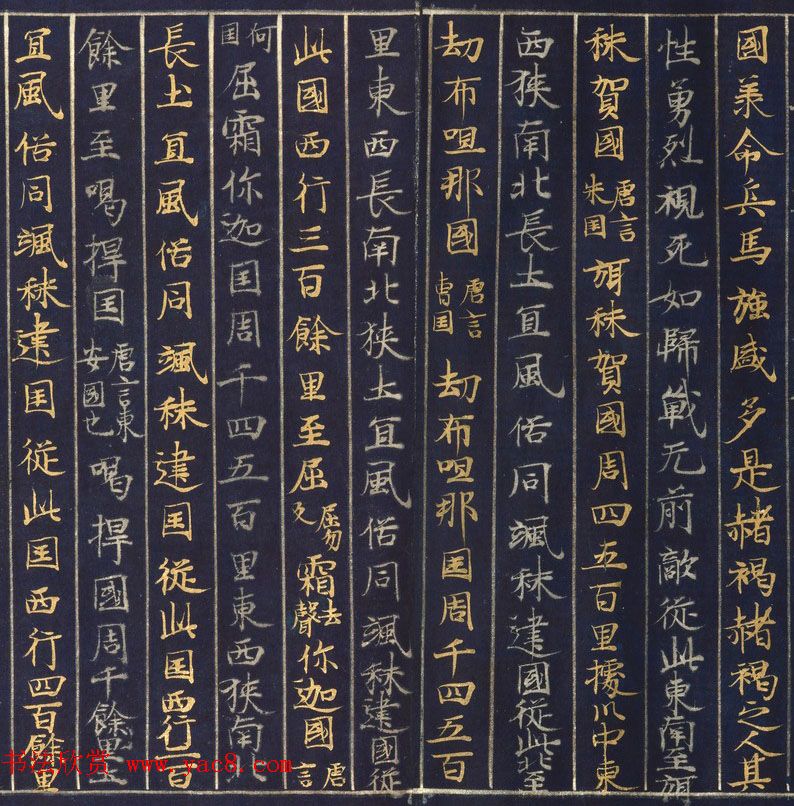 國美命兵馬強盛多是赭褐赭褐之人其
性勇烈視死如歸戰无前敵從此東南至弭
秣賀國唐言朱国弭秣賀國周四五百里據川中東
西狹南北長土宜風俗同颯秣建國從此北至
劫布呾那國唐言曹国劫布呾那国周千四五百
里東西長南北狹土宜風俗同颯秣建國從
此國西行三百餘里至屈屈勿反霜去聲你迦國唐言
何国屈霜你迦国周千四五百里東西狹南北
長土宜風俗同颯秣建国從此国西行二百
餘里至喝捍国唐言東安國也喝捍國周千餘里土
宜風俗同颯秣建国從此国西行四百餘里
书法欣赏 www.yac8.com